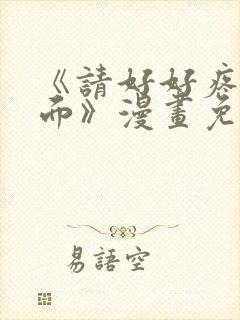 《請好好疼
而》漫畫免
易語空